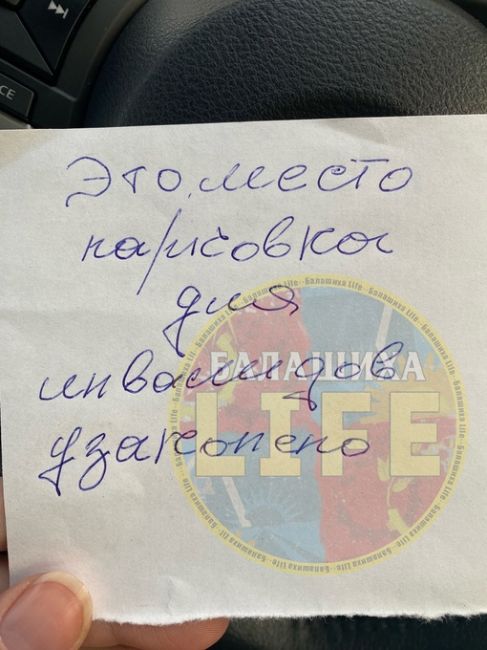 CE
Это место
парковка
для
инвалидов
узаконено
БАЛАШИХА
LIFE
Балашиха Life · Балашиха Life · Балашиха Life · Балашиха Life